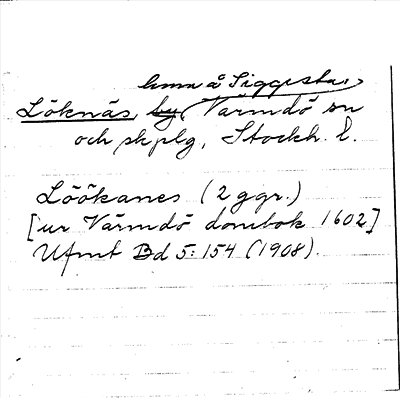 hmn å Siggesta,
Löknäs, by, Värmdö sn
och skplg, Stockh. l.
Löökanes (2 ggr.)
[ur Värmdö dombok 1602]
Ufmt Bd 5: 154 (1908).